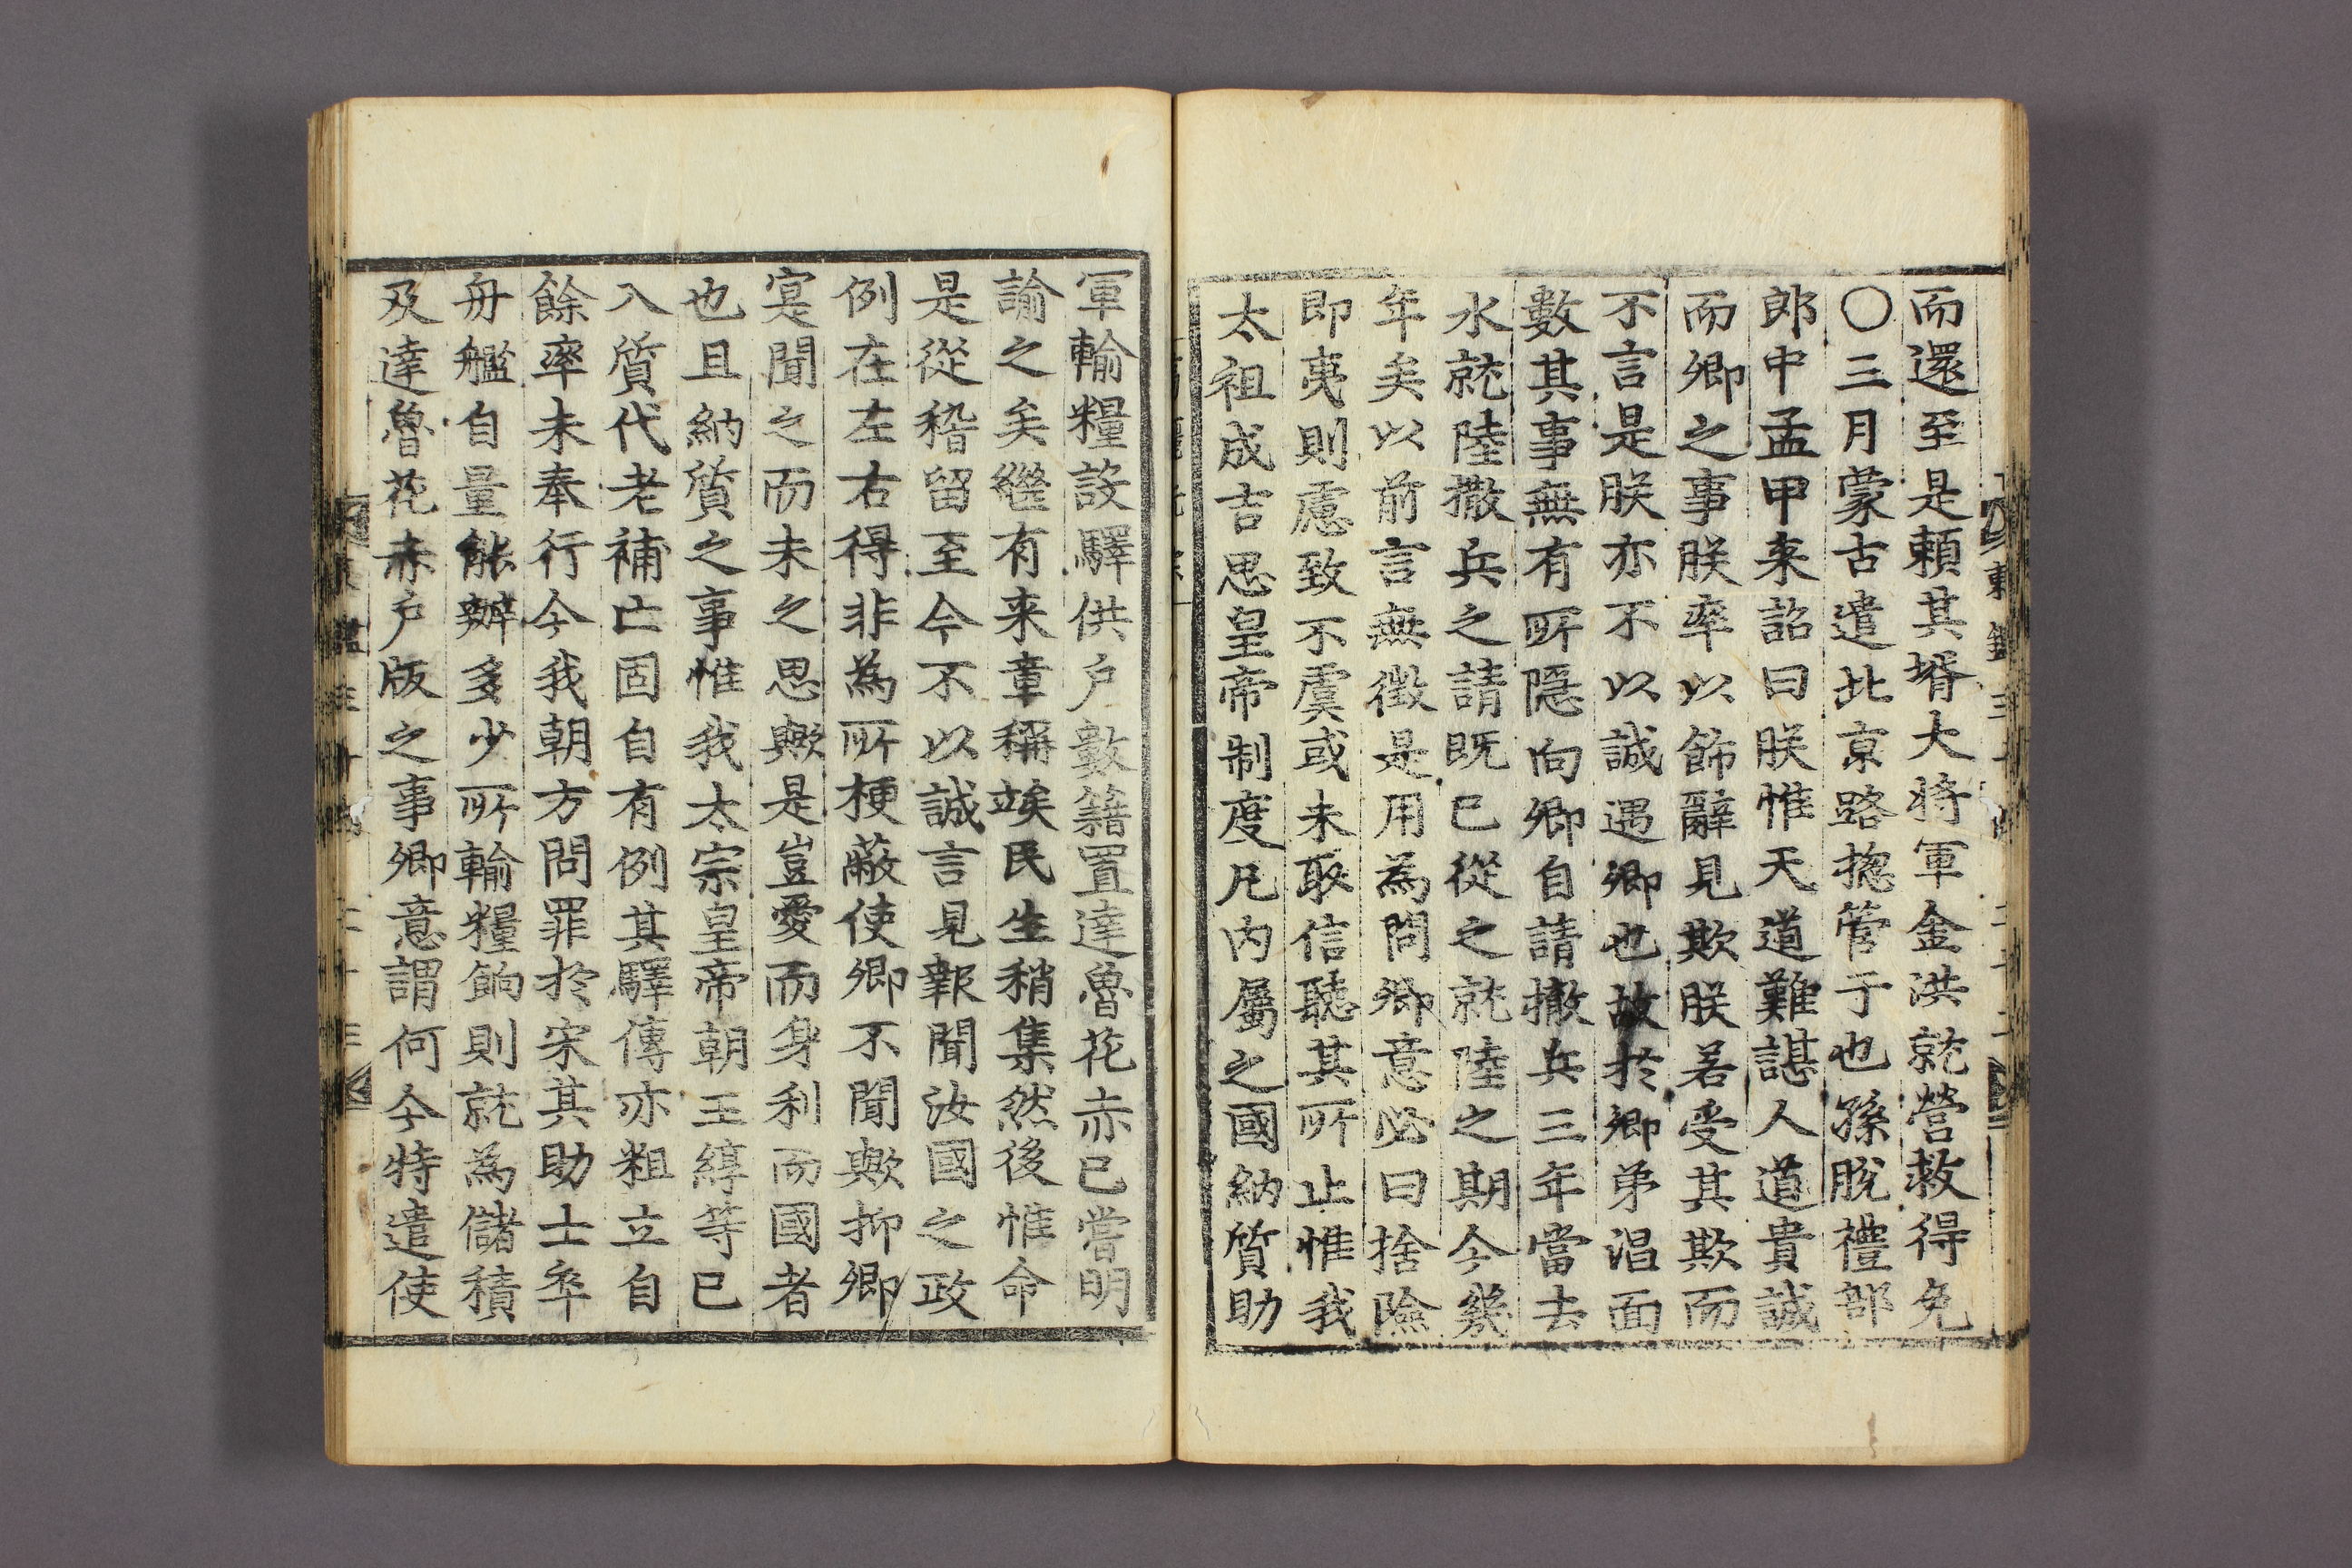 而還至是頼其壻大将軍金洪就營救得免
〇三月蒙古遣北京路摠管于也孫脫禮部
郎中孟甲来詔曰朕惟天道難諶人道貴誠
而卿之事朕率以飾辭見欺朕若受其欺而
不言是朕亦不以誠遇卿也故於卿弟淐面
數其事無有所隱向卿自請撤兵三年當去
水就陸撤兵之請既已從之就陸之期今幾
年矣以前言無徴是用為問卿意必曰捨險
即夷則慮致不虞或未取信聽其所止惟我
太祖成吉思皇帝制度凡内屬之國納質助
軍輸糧設驛供户數籍置達魯花赤已嘗明
諭之矣継有来章稱竢民生稍集然後惟命
是從稽留至今不以誠言見報聞汝國之政
例在左右得非為所梗蔽使卿不聞歟抑卿
寔聞之而未之思歟是豈愛而身利而國者
也且納質之事惟我太宗皇帝朝王綧等已
入質代老補亡固自有例其驛傳亦粗立自
餘率未奉行今我朝方問罪於宋其助士卒
舟艦自量能辦多少所輸糧餉則就為儲積
及達魯花赤户版之事卿意謂何今特遣使